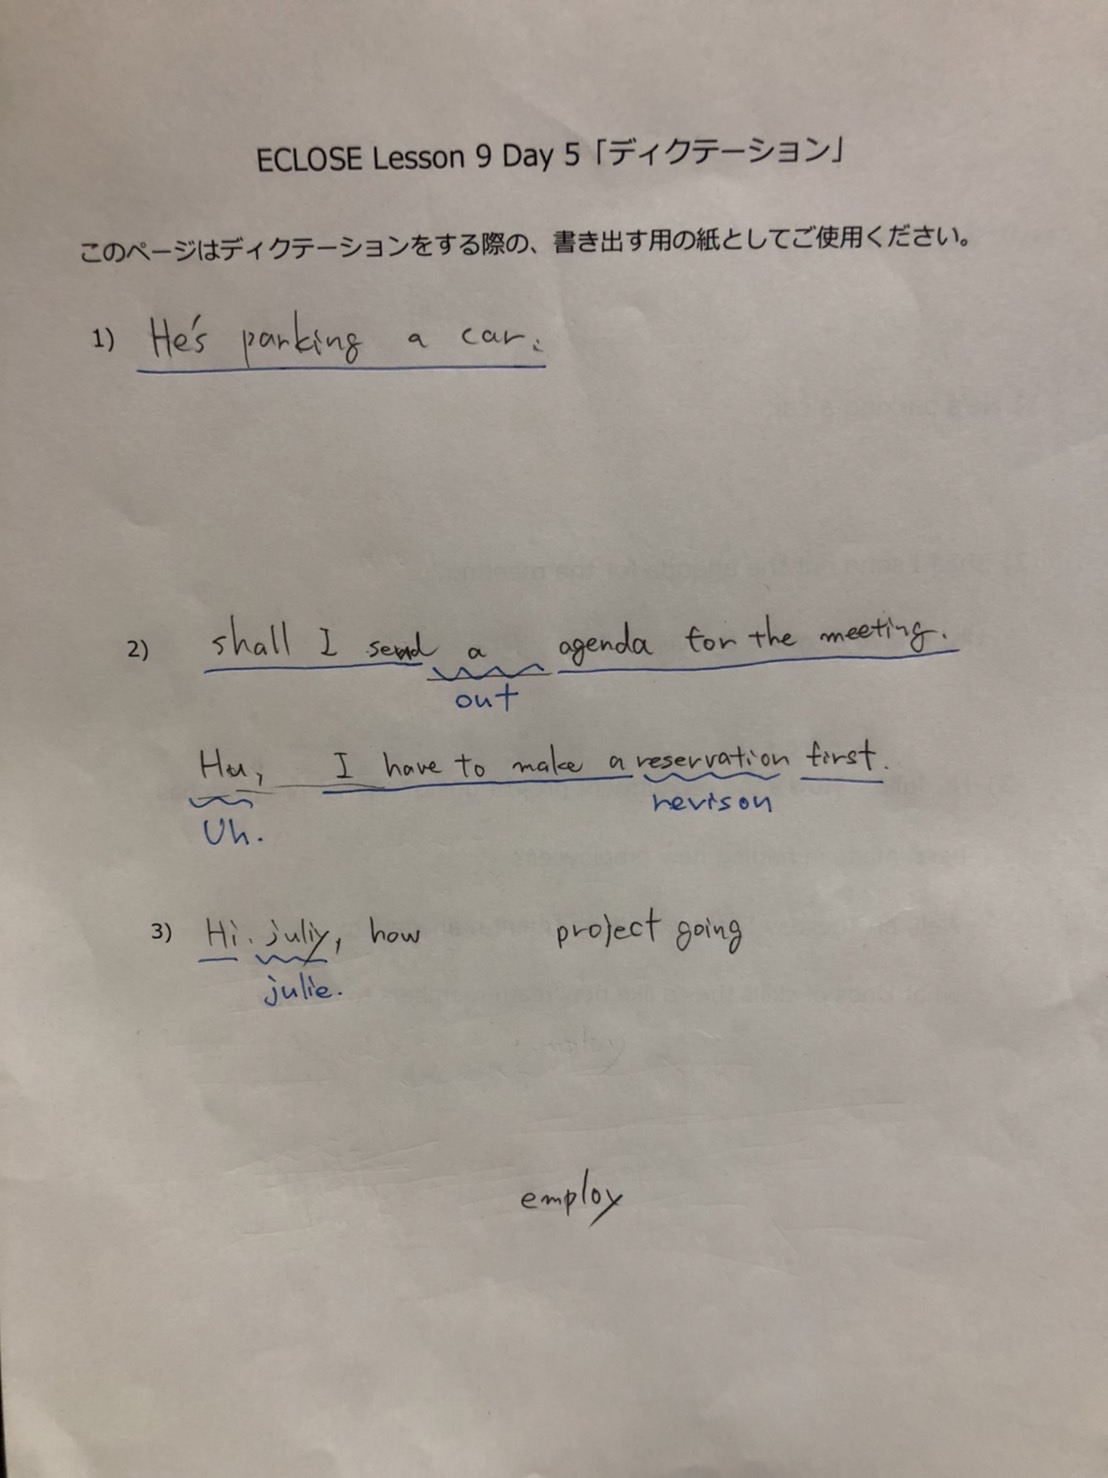 ECLOSE Lesson 9 Day 5「ディクテーション」
このページはディクテーションをする際の、書き出す用の紙としてご使用ください。
1) He's parking a car.
2) shall I send a agenda for the meeting.
out
Hu, I have to make a reservation first.
Uh. revison
3) Hi. juliy, how project going
julie.
employ